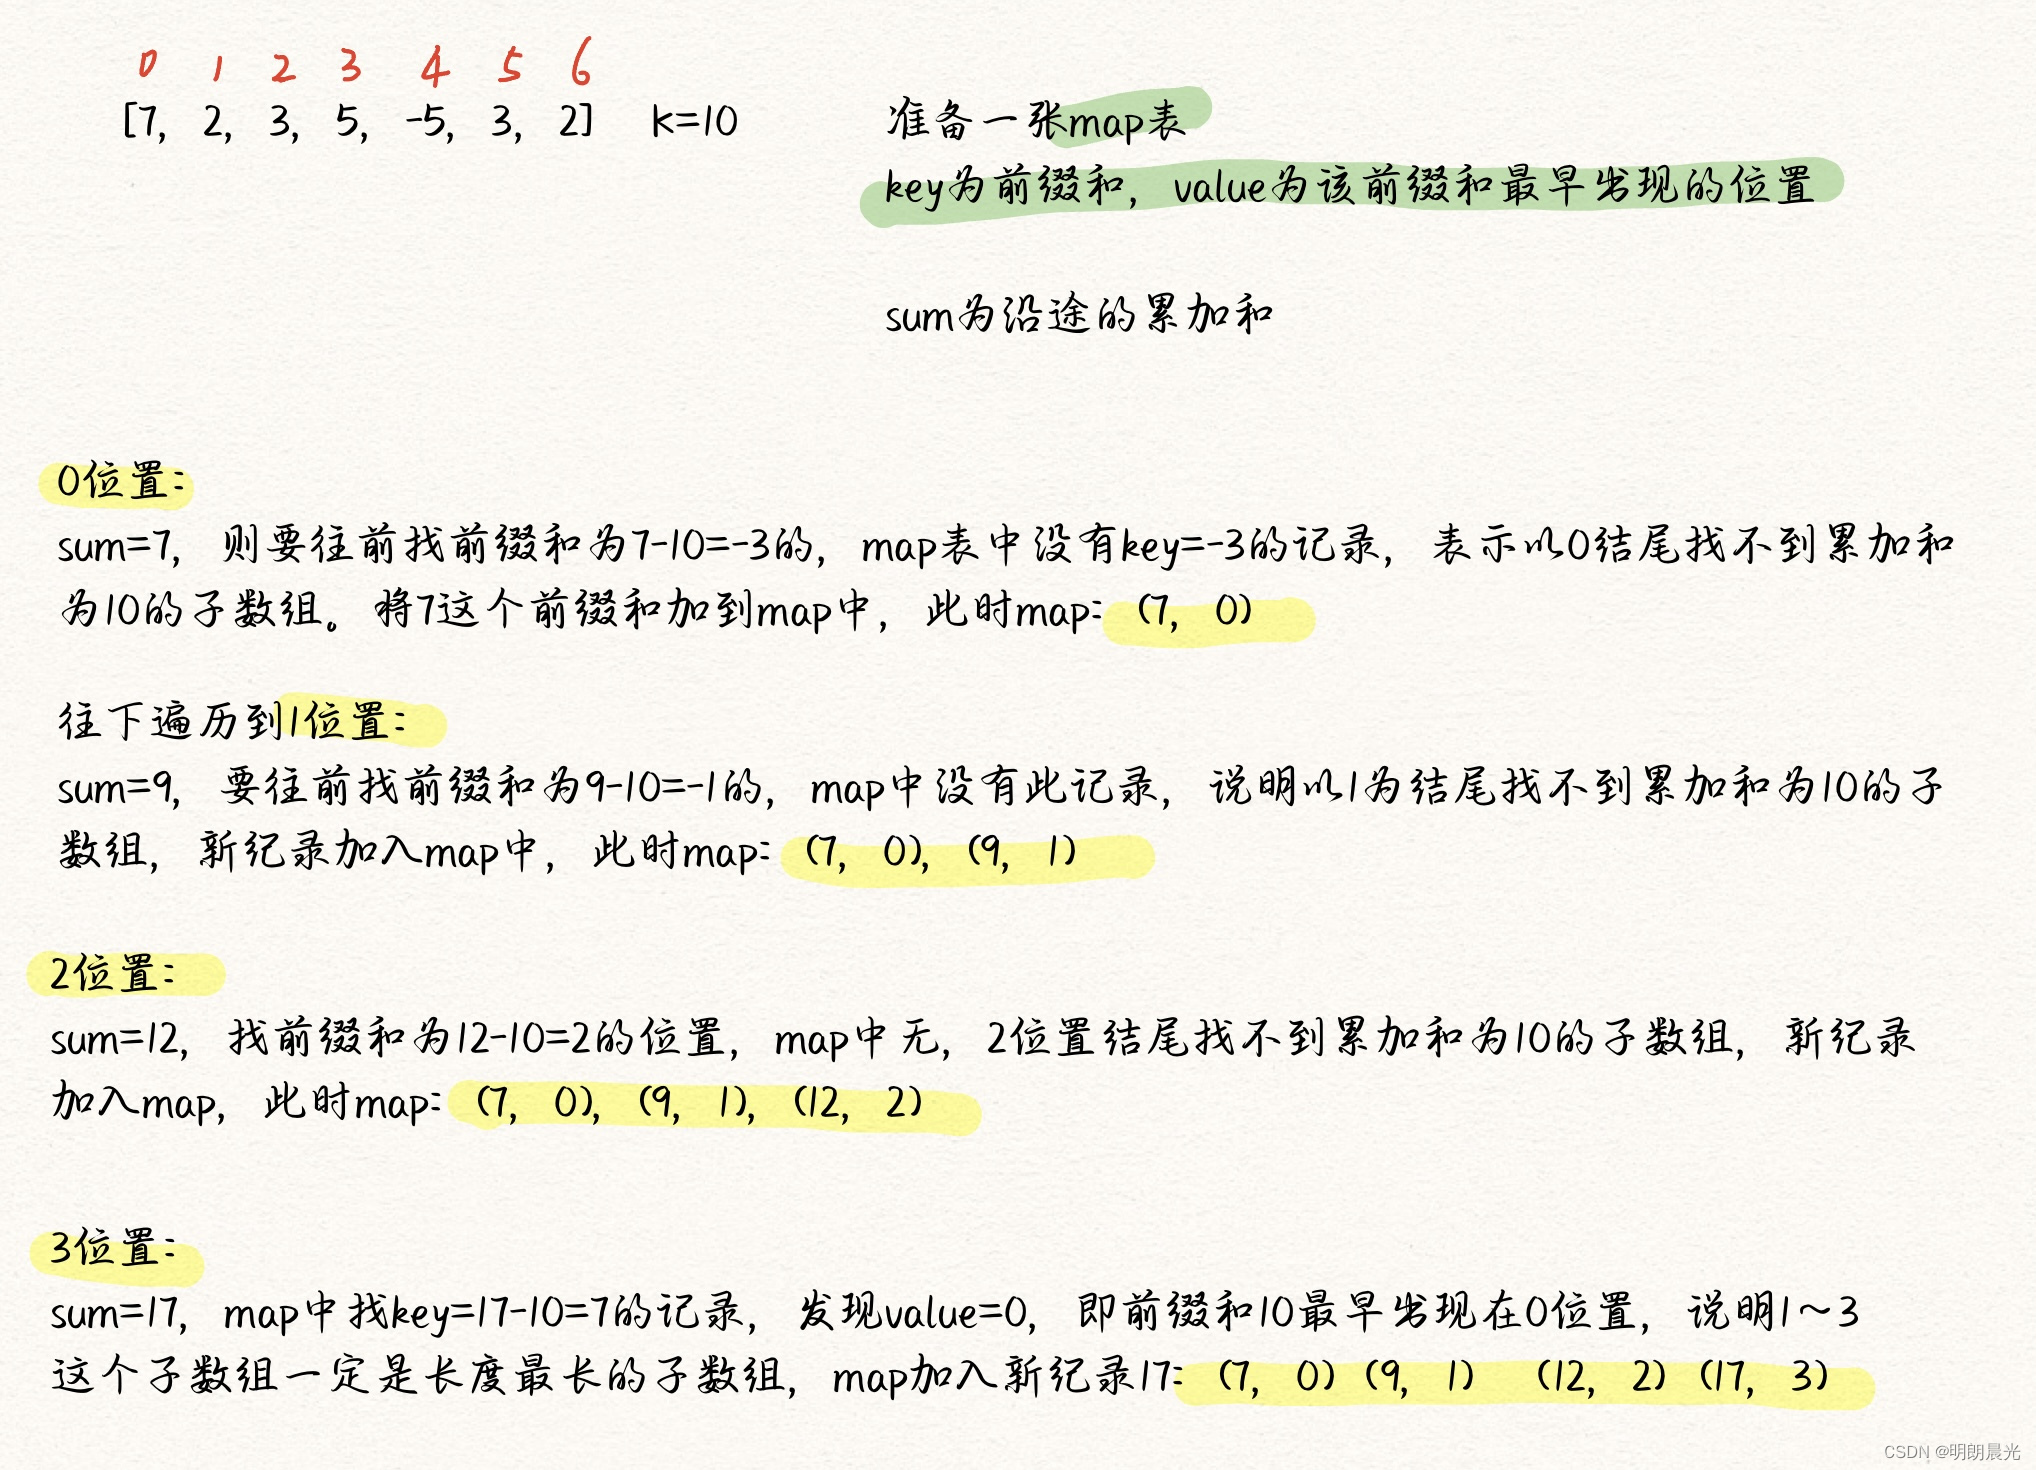 0 1 2 3 4 5 6
[7, 2, 3, 5, -5, 3, 2] k=10
准备一张map表
key为前缀和，value为该前缀和最早出现的位置
sum为沿途的累加和
0位置：
sum=7，则要往前找前缀和为7-10=-3的，map表中没有key=-3的记录，表示以0结尾找不到累加和
为10的子数组。将7这个前缀和加到map中，此时map：(7, 0)
往下遍历到1位置：
sum=9，要往前找前缀和为9-10=-1的，map中没有此记录，说明以1为结尾找不到累加和为10的子
数组，新纪录加入map中，此时map：(7, 0), (9, 1)
2位置：
sum=12，找前缀和为12-10=2的位置，map中无，2位置结尾找不到累加和为10的子数组，新纪录
加入map，此时map：(7, 0), (9, 1), (12, 2)
3位置：
sum=17，map中找key=17-10=7的记录，发现value=0，即前缀和10最早出现在0位置，说明1~3
这个子数组一定是长度最长的子数组，map加入新纪录17：(7, 0) (9, 1) (12, 2) (17, 3)
CSDN @明朗晨光